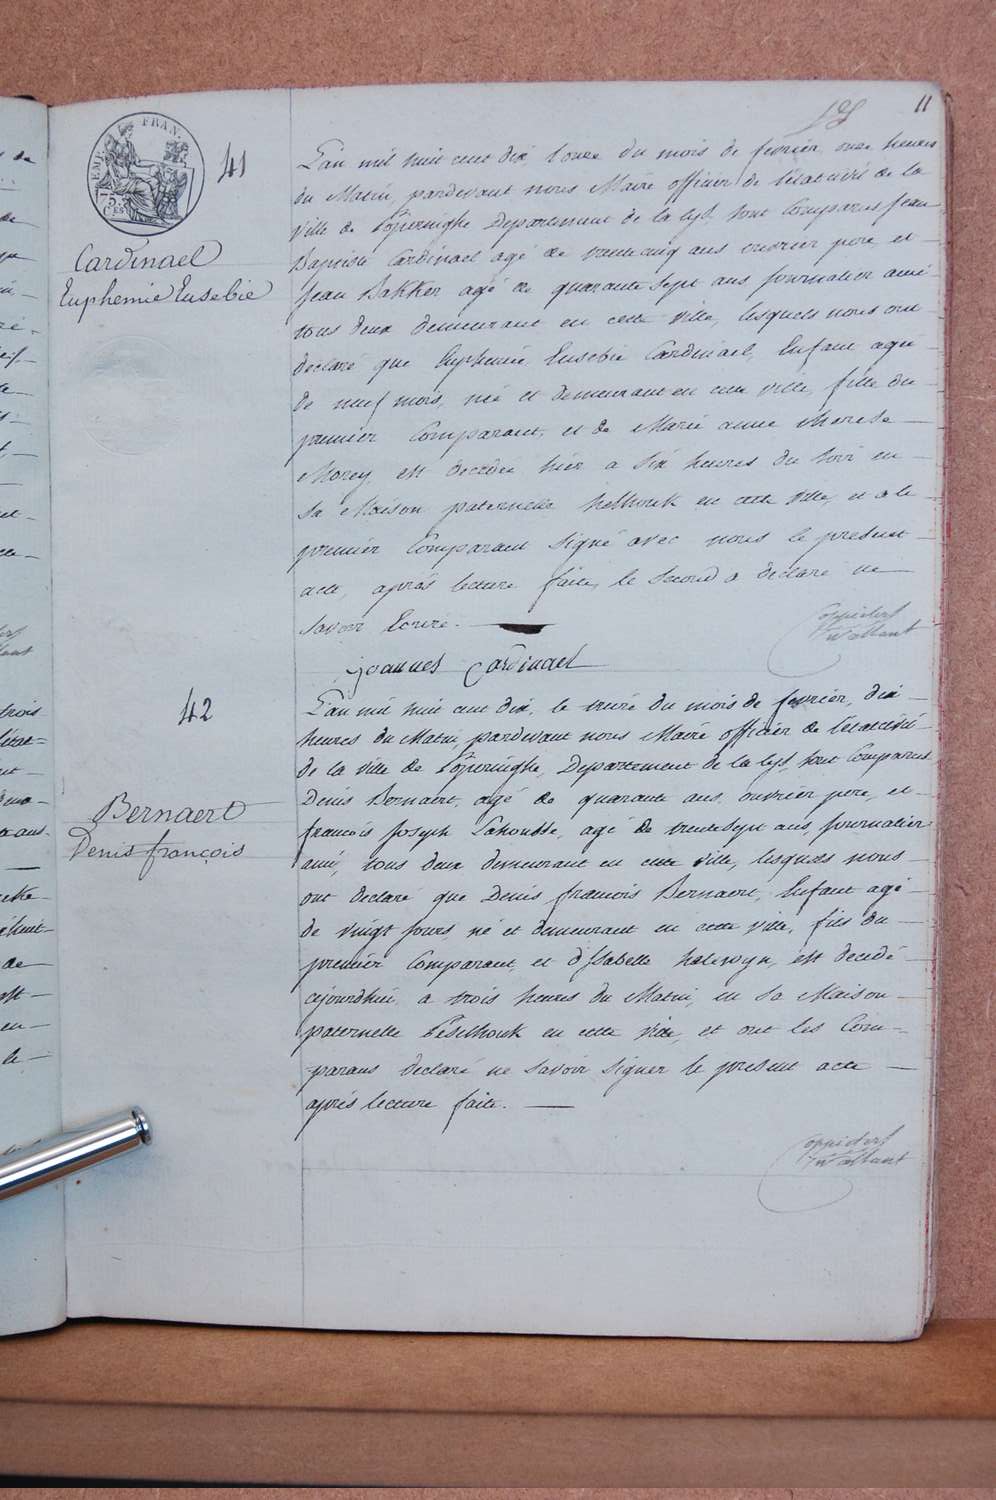 11
EMP. FRAN.
75.
CES
41
Cardinael
Euphemie Eusebie
L'an mil huit cent dix l'onze du mois de fevrier onze heures
du Matin, pardevant nous Maire officier de l'état civil de la
ville de Poperinghe Departement de la Lys, sont Comparus Jean
Baptiste Cardinael agé de trente cinq ans ouvrier pere et
Jean Bakker agé de quarante sept ans journalier ami
tous deux demeurant en cette ville, lesquels nous ont
declaré que Euphemie Eusebie Cardinael, Enfant agée
de neuf mois, née et demeurant en cette ville, fille du
premier Comparant, et de Marie anne therese
Morey est decedée hier a six heures du soir en
sa Maison paternelle en cette ville, et a le
premier Comparant signé avec nous le present
acte, après lecture faite, le second a declaré ne
savoir Ecrire.
Joannes Cardinael
42
Bernaert
Denis françois
L'an mil huit cent dix, le treize du mois de fevrier, dix
heures du Matin, pardevant nous Maire officier de l'état civil
de la ville de Poperinghe, Departement de la Lys, sont Comparus
Denis Bernaert, agé de quarante ans, ouvrier pere, et
francois Joseph Lahousse, agé de trente sept ans, journalier
ami, tous deux demeurant en cette ville, lesquels nous
ont declaré que Denis francois Bernaert, Enfant agé
de vingt jours, né et demeurant en cette ville, fils du
premier Comparant, et d'Isabelle halewyn, est decedé
cejourdhui, a trois heures du Matin, en sa Maison
paternelle Peselhouk en cette ville, et ont les Com-
parans declaré ne savoir signer le present acte
après lecture faite.